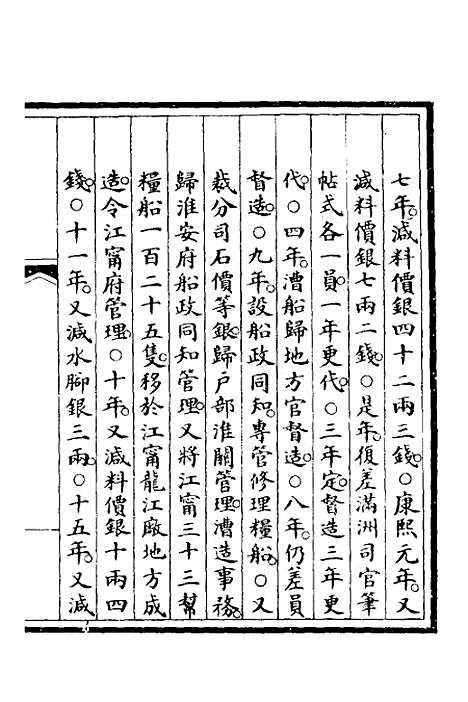 七年。減料價銀四十二兩三錢。○康熙元年。又
減料價銀七兩二錢。○是年。復差滿洲司官筆
帖式各一員。一年更代。○三年。定督造三年更
代。○四年。漕船歸地方官督造。○八年。仍差員
督造。○九年。設船政同知。專管修理糧船。○又
裁分司石價等銀。歸戶部淮關管理。漕造事務。
歸淮安府船政同知管理。又將江甯三十三幫
糧船一百二十五隻。移於江甯龍江廠地方成
造。令江甯府管理。○十年。又減料價銀十兩四
錢。○十一年。又減水腳銀三兩。○十五年。又減